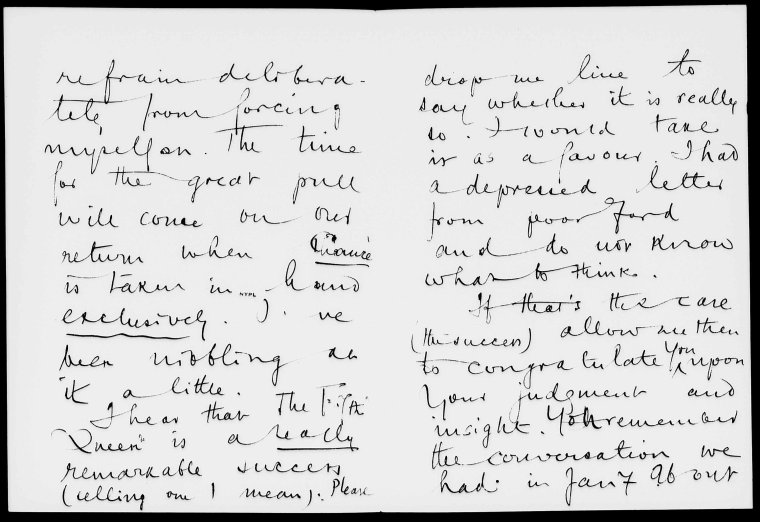 refrain delibera-
tely from forcing
myself on. The time
for the great pull
will come on our
return when Chance
is taken in hand
NYPL
exclusively. I've
been nibbling at
it a little.
I hear that The Fifth
Queen" is a really
remarkable success
(selling one I mean). Please
drop me line to
say whether it is really
so. I would take
it as a favour. I had
a depressed letter
from poor Ford
and do not know
what to think.
If that's the case
(the success) allow me then
to congratulate You upon
Your judgment and
insight. You remember
the conversation we
had in Jan7 about